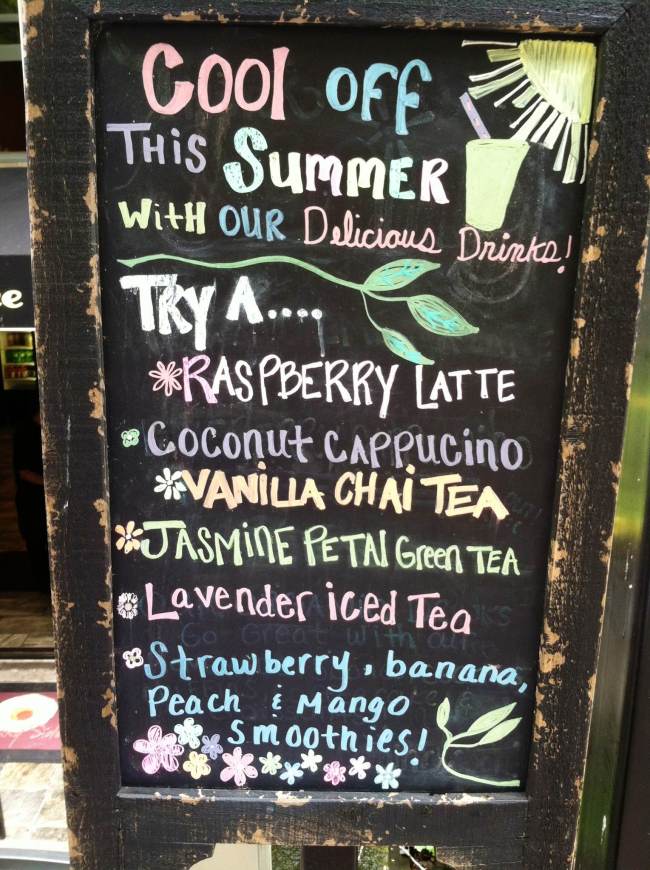 Cool OFF
THiS SUMMER
WitH OUR Delicious Drinks!
TRY A....
RASPBERRY LATTE
Coconut CAPPUCino
VANiLLA CHAi TEA
JASMinE PETAl Green TEA
Lavender iced Tea
Strawberry, banana,
Peach & Mango
Smoothies!